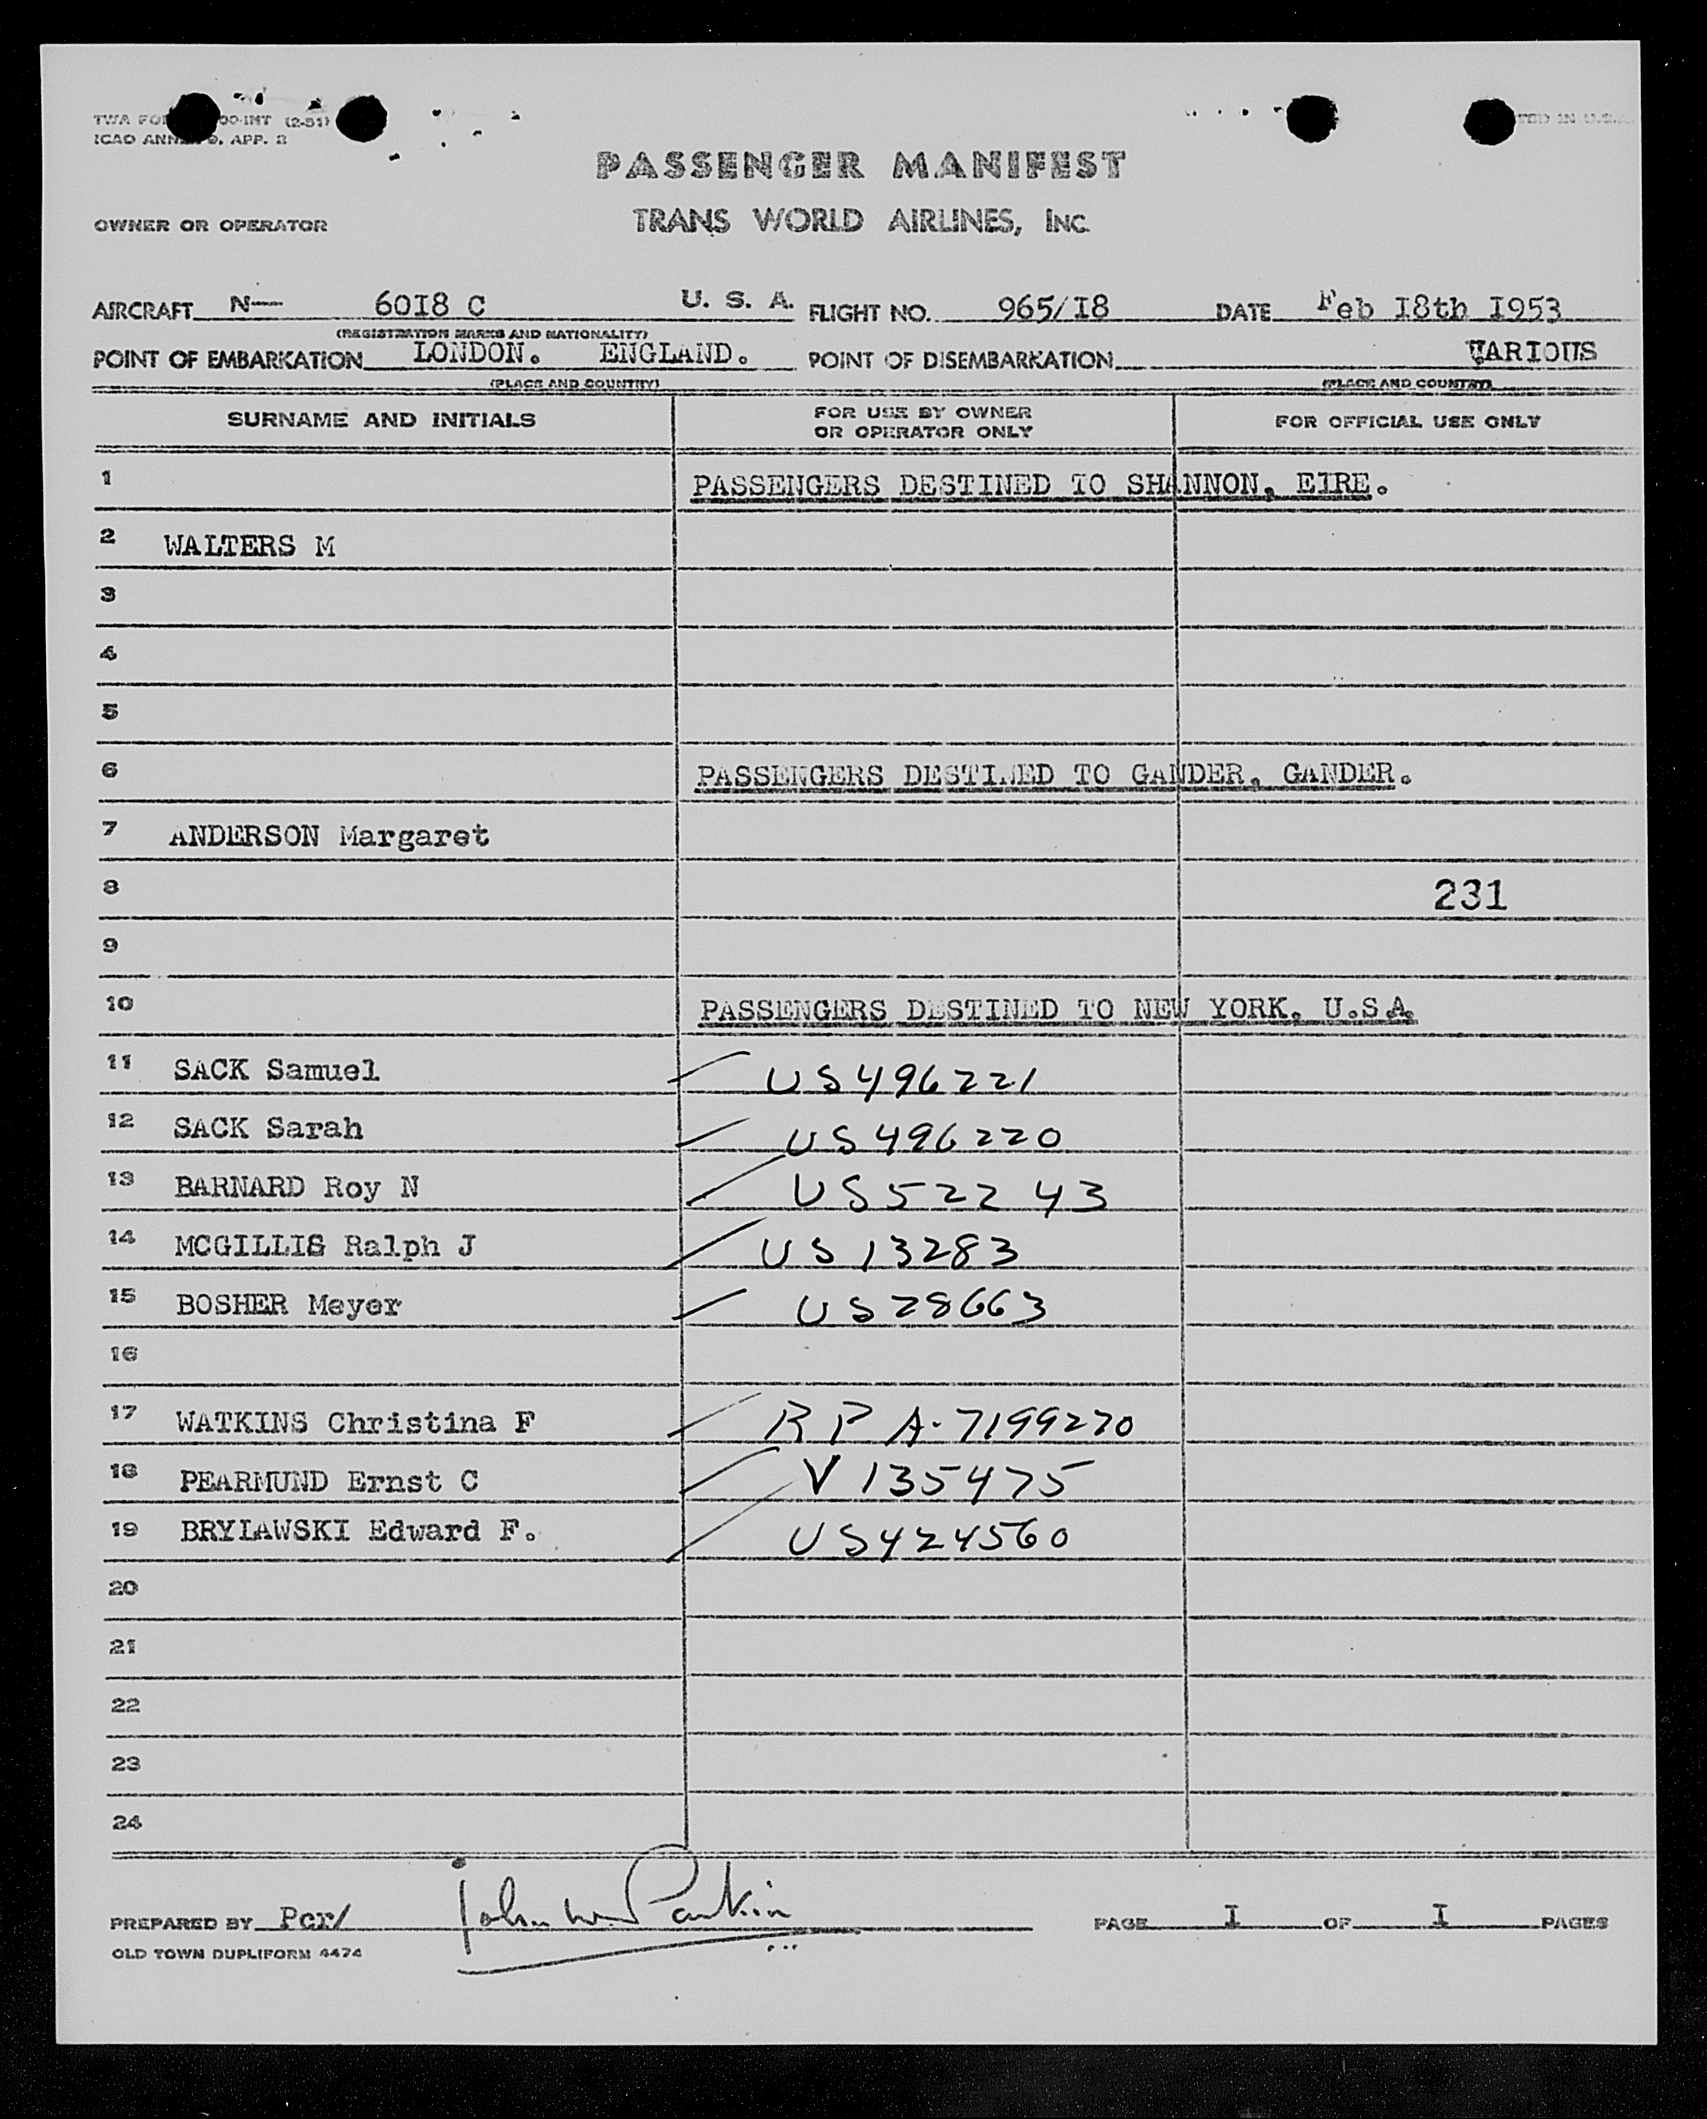 TWA FO 00-INT (2-51)
ICAO ANN 9, APP. 2
PASSENGER MANIFEST
OWNER OR OPERATOR TRANS WORLD AIRLINES, INC.
AIRCRAFT N— 6018 C U. S. A. FLIGHT NO. 965/18 DATE Feb 18th 1953
(REGISTRATION MARKS AND NATIONALITY)
POINT OF EMBARKATION LONDON. ENGLAND. POINT OF DISEMBARKATION VARIOUS
(PLACE AND COUNTRY) (PLACE AND COUNTRY)
SURNAME AND INITIALS FOR USE BY OWNER OR OPERATOR ONLY FOR OFFICIAL USE ONLY
1 PASSENGERS DESTINED TO SHANNON, EIRE.
2 WALTERS M
3
4
5
6 PASSENGERS DESTINED TO GANDER, GANDER.
7 ANDERSON Margaret
8 231
9
10 PASSENGERS DESTINED TO NEW YORK, U.S.A.
11 SACK Samuel US496221
12 SACK Sarah US496220
13 BARNARD Roy N US522 43
14 MCGILLIS Ralph J US 13283
15 BOSHER Meyer US28663
16
17 WATKINS Christina F R P A-7199270
18 PEARMUND Ernst C V 135475
19 BRYLAWSKI Edward F. US424560
20
21
22
23
24
PREPARED BY Per/ John W. Parkin PAGE I OF I PAGES
OLD TOWN DUPLIFORM 4474